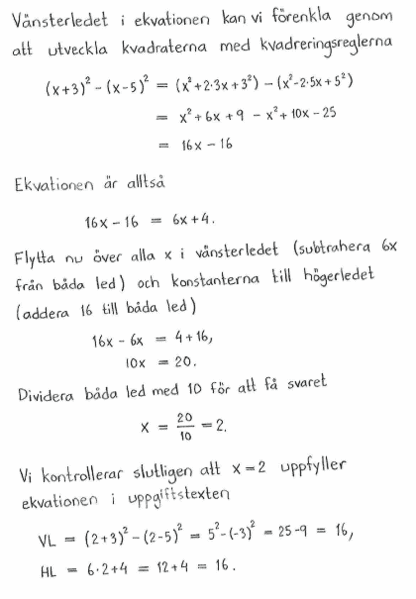 Vänsterledet i ekvationen kan vi förenkla genom
att utveckla kvadraterna med kvadreringsreglerna
(x+3)² - (x-5)² = (x²+2·3x+3²) - (x²-2·5x+5²)
= x² + 6x + 9 - x² + 10x - 25
= 16x - 16
Ekvationen är alltså
16x - 16 = 6x + 4.
Flytta nu över alla x i vänsterledet (subtrahera 6x
från båda led) och konstanterna till högerledet
(addera 16 till båda led)
16x - 6x = 4 + 16,
10x = 20.
Dividera båda led med 10 för att få svaret
x = 20/10 = 2.
Vi kontrollerar slutligen att x = 2 uppfyller
ekvationen i uppgiftstexten
VL = (2+3)² - (2-5)² = 5² - (-3)² = 25 - 9 = 16,
HL = 6·2+4 = 12+4 = 16.